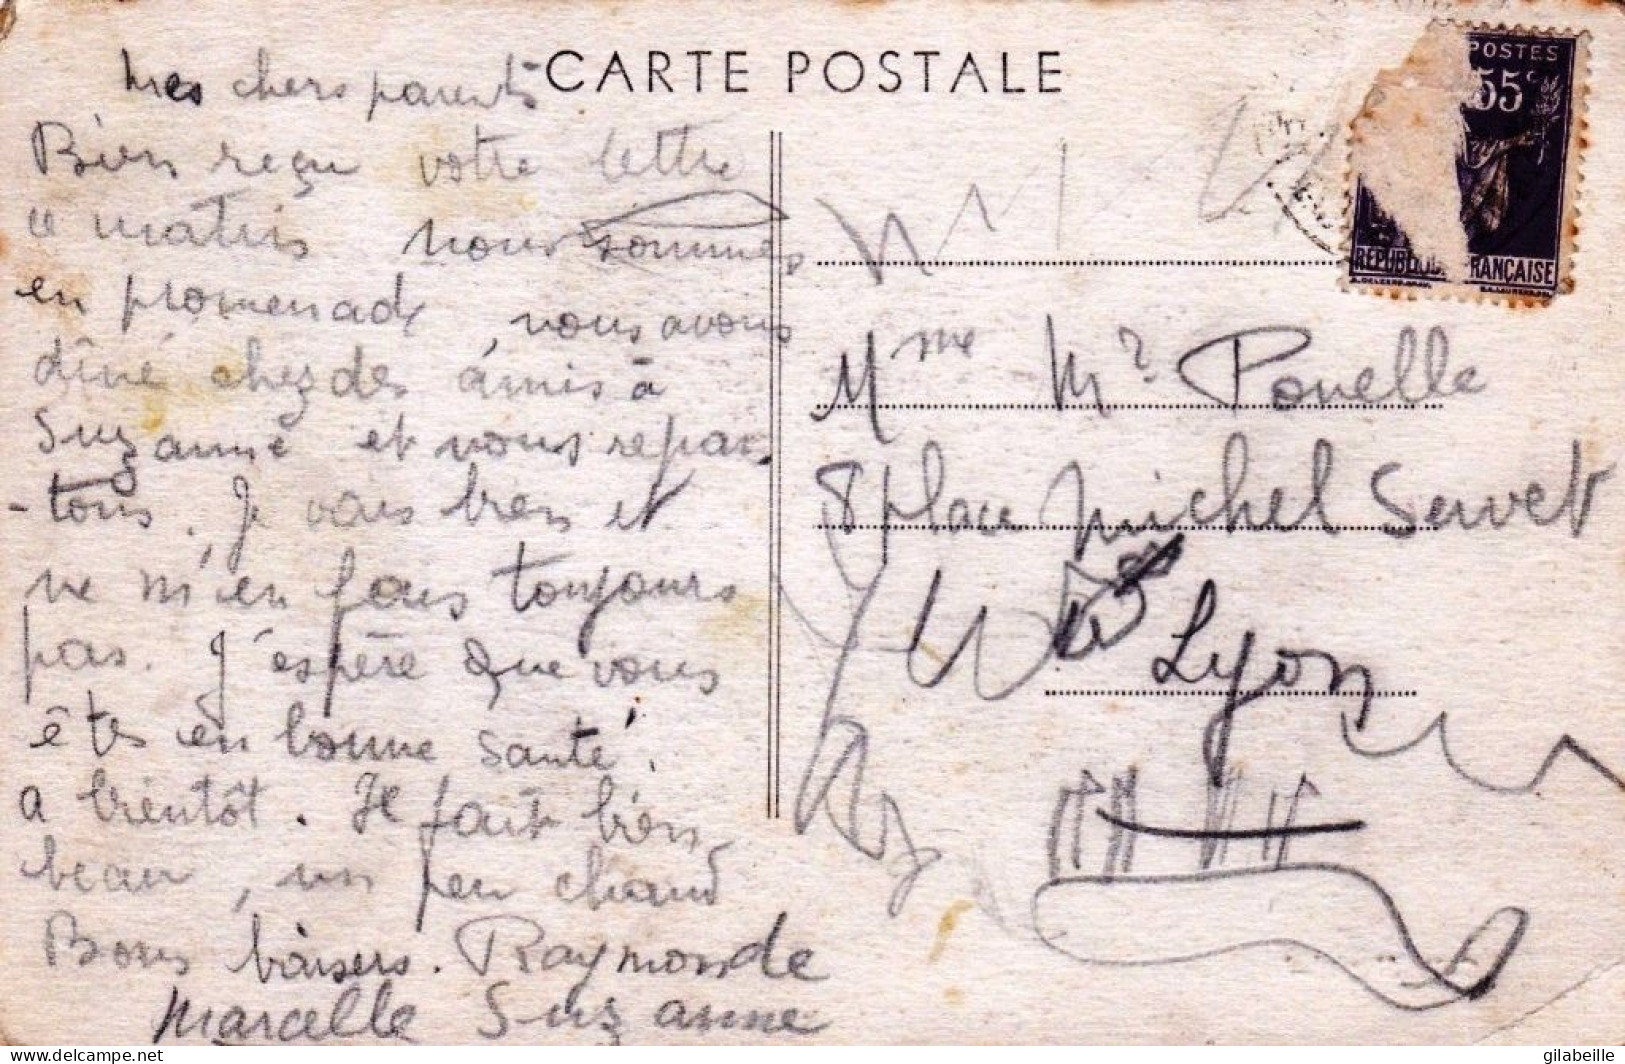 CARTE POSTALE
Mes chers parents
Bien reçu votre lettre
ce matin nous sommes
en promenade, nous avons
dîné chez des amis à
Suzanne et nous repar
-tons. Je vais bien et
ne m'en fais toujours
pas. J'espère que vous
êtes en bonne santé.
a bientôt. Il fait bien
beau, un peu chaud
Bons baisers. Raymonde
Marcelle Suzanne
POSTES
55c
REPUBLIQUE FRANÇAISE
Mme Mr Ponelle
8 place Michel Servet
Lyon
delcampe.net
gilabeille